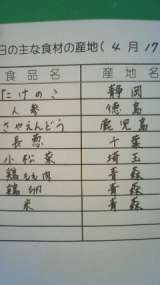 日の主な食材の産地(4月17
食品名 産地名
たけのこ 静岡
人参 徳島
さやえんどう 鹿児島
長葱 千葉
小松菜 埼玉
鶏もも肉 青森
鶏卵 青森
米 青森